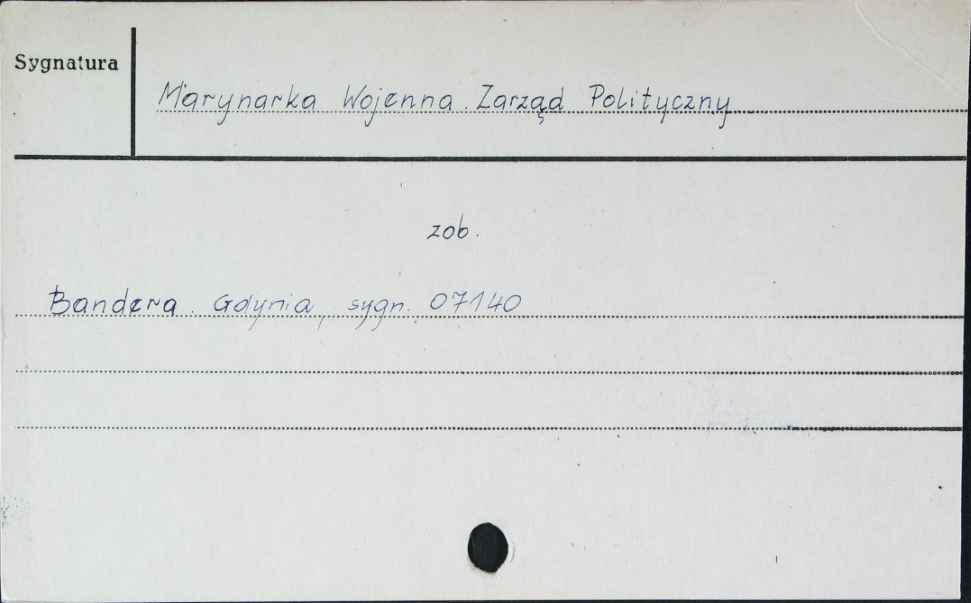 Sygnatura
Marynarka Wojenna. Zarząd Polityczny
zob.
Bandera. Gdynia, sygn. 07140